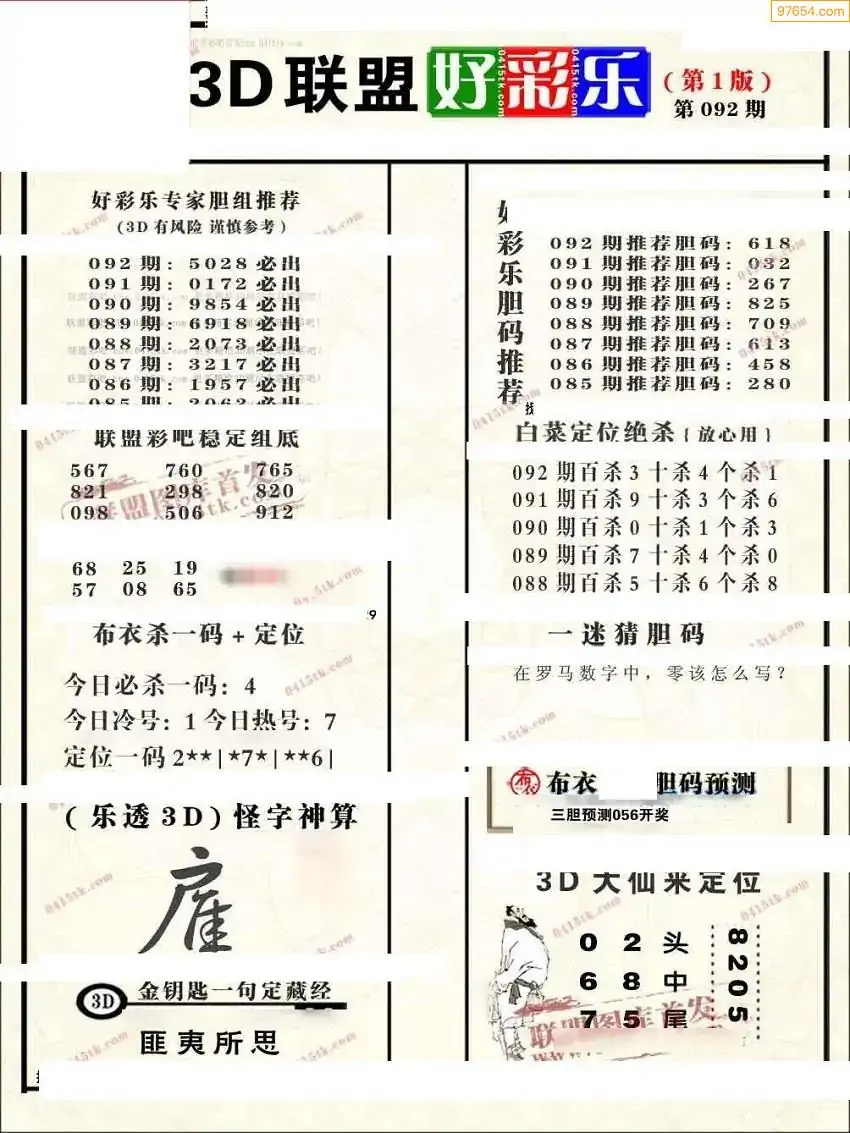 97654.com
3D联盟好彩乐(第1版)
第092期
好彩乐专家胆组推荐
(3D有风险 谨慎参考)
092期: 5028必出
091期: 0172必出
090期: 9854必出
089期: 6918必出
088期: 2073必出
087期: 3217必出
086期: 1957必出
085期: 2063必出
联盟彩吧稳定组底
567 760 765
821 298 820
098 506 912
68 25 19
57 08 65
布衣杀一码+定位
今日必杀一码: 4
今日冷号: 1 今日热号: 7
定位一码2**|*7*|**6|
(乐透3D)怪字神算
3D 金钥匙一句定藏经
匪夷所思
好彩乐胆码推荐
092期推荐胆码: 618
091期推荐胆码: 032
090期推荐胆码: 267
089期推荐胆码: 825
088期推荐胆码: 709
087期推荐胆码: 613
086期推荐胆码: 458
085期推荐胆码: 280
白菜定位绝杀{放心用}
092期百杀3十杀4个杀1
091期百杀9十杀3个杀6
090期百杀0十杀1个杀3
089期百杀7十杀4个杀0
088期百杀5十杀6个杀8
一迷猜胆码
在罗马数字中，零该怎么写?
布衣 胆码预测
三胆预测056开奖
3D大仙来定位
0 2 头
6 8 中
7 5 尾
8205
联盟图库首发
0415tk.com